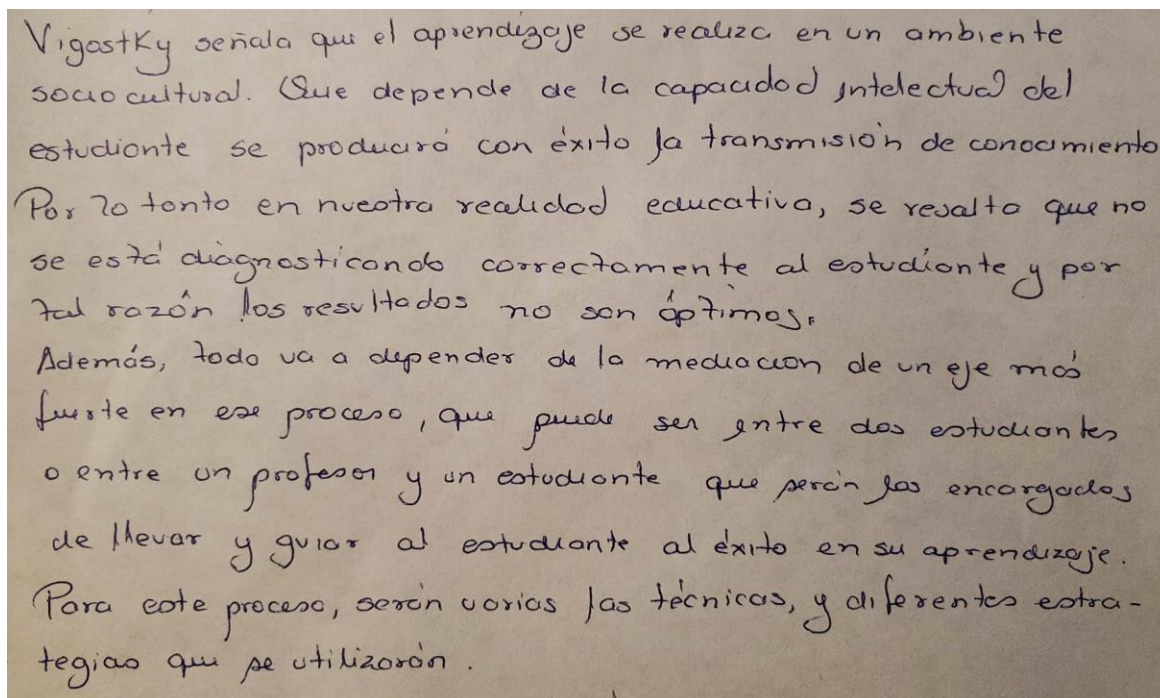 Vigostky señala que el aprendizaje se realiza en un ambiente
socio cultural. Que depende de la capacidad intelectual del
estudiante se producirá con éxito la transmisión de conocimiento
Por lo tanto en nuestra realidad educativa, se resalta que no
se está diagnosticando correctamente al estudiante y por
tal razón los resultados no son óptimos.
Además, todo va a depender de la mediación de un eje más
fuerte en ese proceso, que puede ser entre dos estudiantes
o entre un profesor y un estudiante que serán los encargados
de llevar y guiar al estudiante al éxito en su aprendizaje.
Para este proceso, serán varias las técnicas, y diferentes estra-
tegias que se utilizarán.